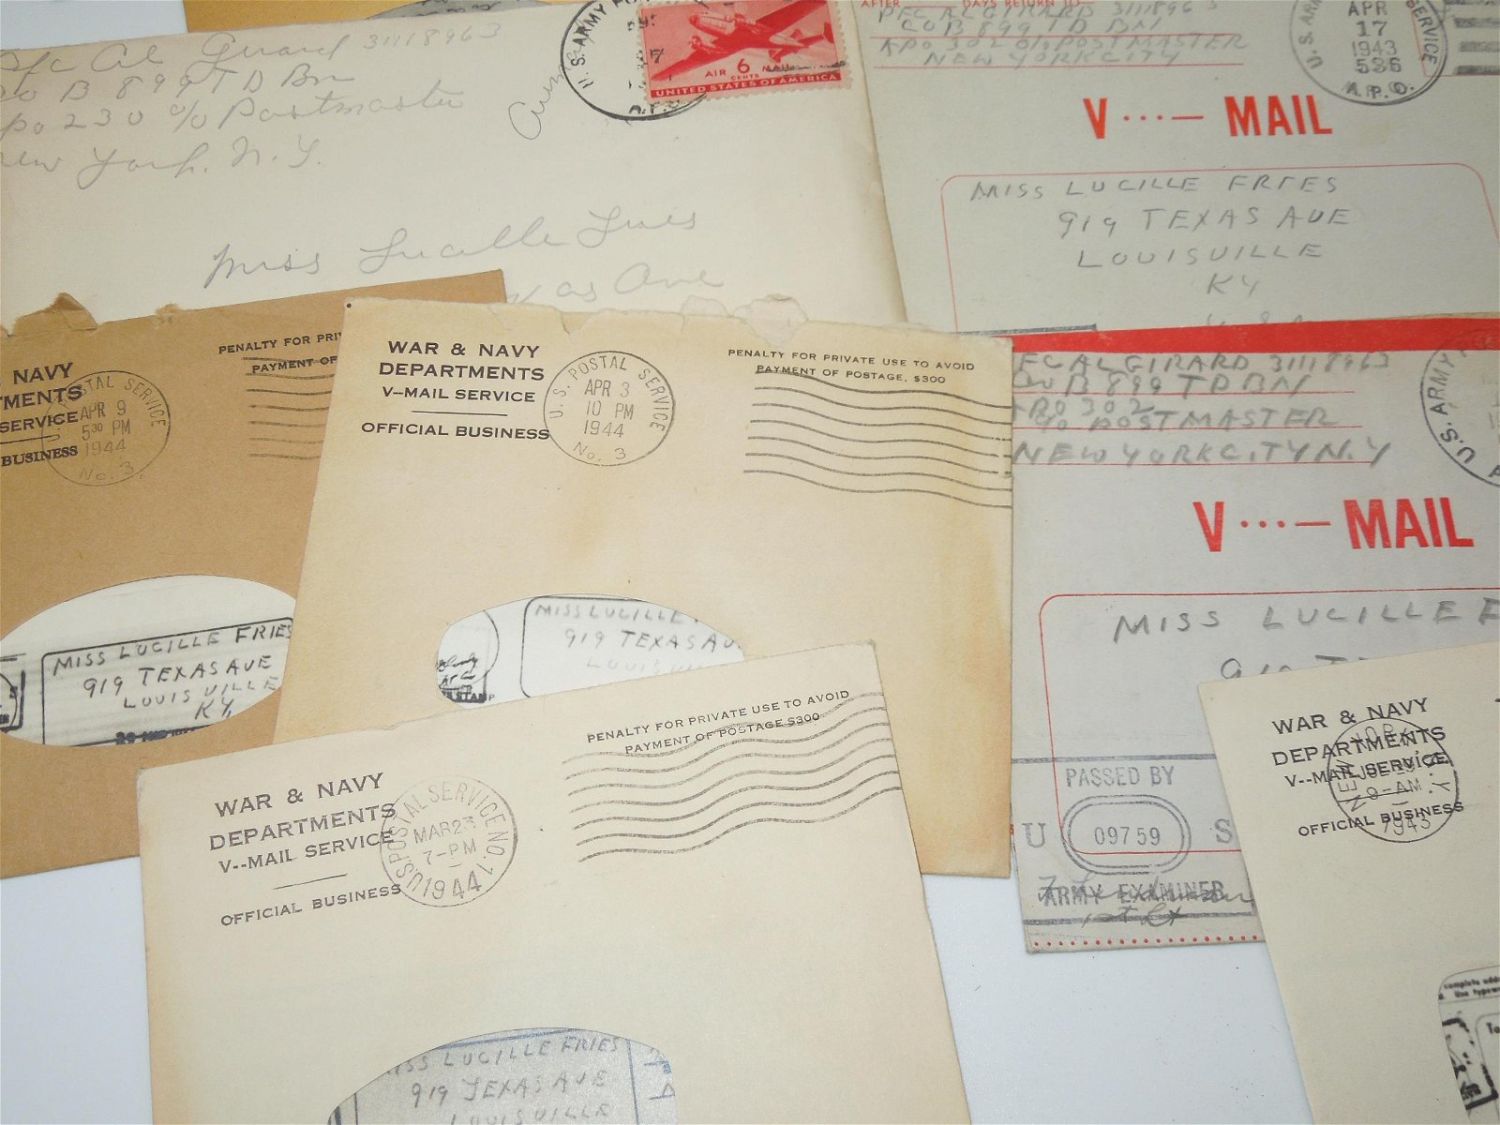 Pfc Al Girard 31118963
Co B 899 T D Bn
Apo 230 % Postmaster
New York. N. Y.
U.S. ARMY
AIR 6 CENTS MAIL
UNITED STATES OF AMERICA
A.P.O.
Miss Lucille Fries
Texas Ave
AFTER DAYS RETURN TO
PFC AL GIRARD 31118963
CO B 899 TD BN
APO 302 % POSTMASTER
NEW YORK CITY
U.S. ARMY SERVICE
APR
17
1943
536
A.P.O.
V ···— MAIL
MISS LUCILLE FRIES
919 TEXAS AVE
LOUISVILLE
KY
U.S.A.
NAVY
MENTS
SERVICE
BUSINESS
POSTAL SERVICE
APR 9
5 30 PM
1944
No. 3
PENALTY FOR PRI
PAYMENT OF
MISS LUCILLE FRIES
919 TEXAS AVE
LOUISVILLE
KY.
WAR & NAVY
DEPARTMENTS
V--MAIL SERVICE
OFFICIAL BUSINESS
U.S. POSTAL SERVICE
APR 3
10 PM
1944
No. 3
PENALTY FOR PRIVATE USE TO AVOID
PAYMENT OF POSTAGE, $300
MISS LUCILLE
919 TEXAS AV
LOUISVI
STAMP
PFC AL GIRARD 31118963
CO B 899 TD BN
APO 302
% POSTMASTER
NEW YORK CITY N.Y.
U.S. ARMY
V ···— MAIL
MISS LUCILLE F
919 TE
PASSED BY
U 09759 S
ARMY EXAMINER
1st Lt
WAR & NAVY
DEPARTMENTS
V--MAIL SERVICE
OFFICIAL BUSINESS
U.S. POSTAL SERVICE NO. 1
MAR 23
7-PM
1944
PENALTY FOR PRIVATE USE TO AVOID
PAYMENT OF POSTAGE $300
MISS LUCILLE FRIES
919 TEXAS AVE
LOUISVILLE
WAR & NAVY
DEPARTMENTS
V--MAIL SERVICE
OFFICIAL BUSINESS
NEW YORK, N.Y.
9-AM
1943
complete addr
Use typew
To